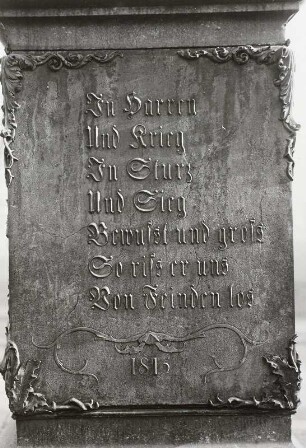 In Harren
Und Krieg
In Sturz
Und Sieg
Bewußt und groß
So riß er uns
Von Feinden los
1815